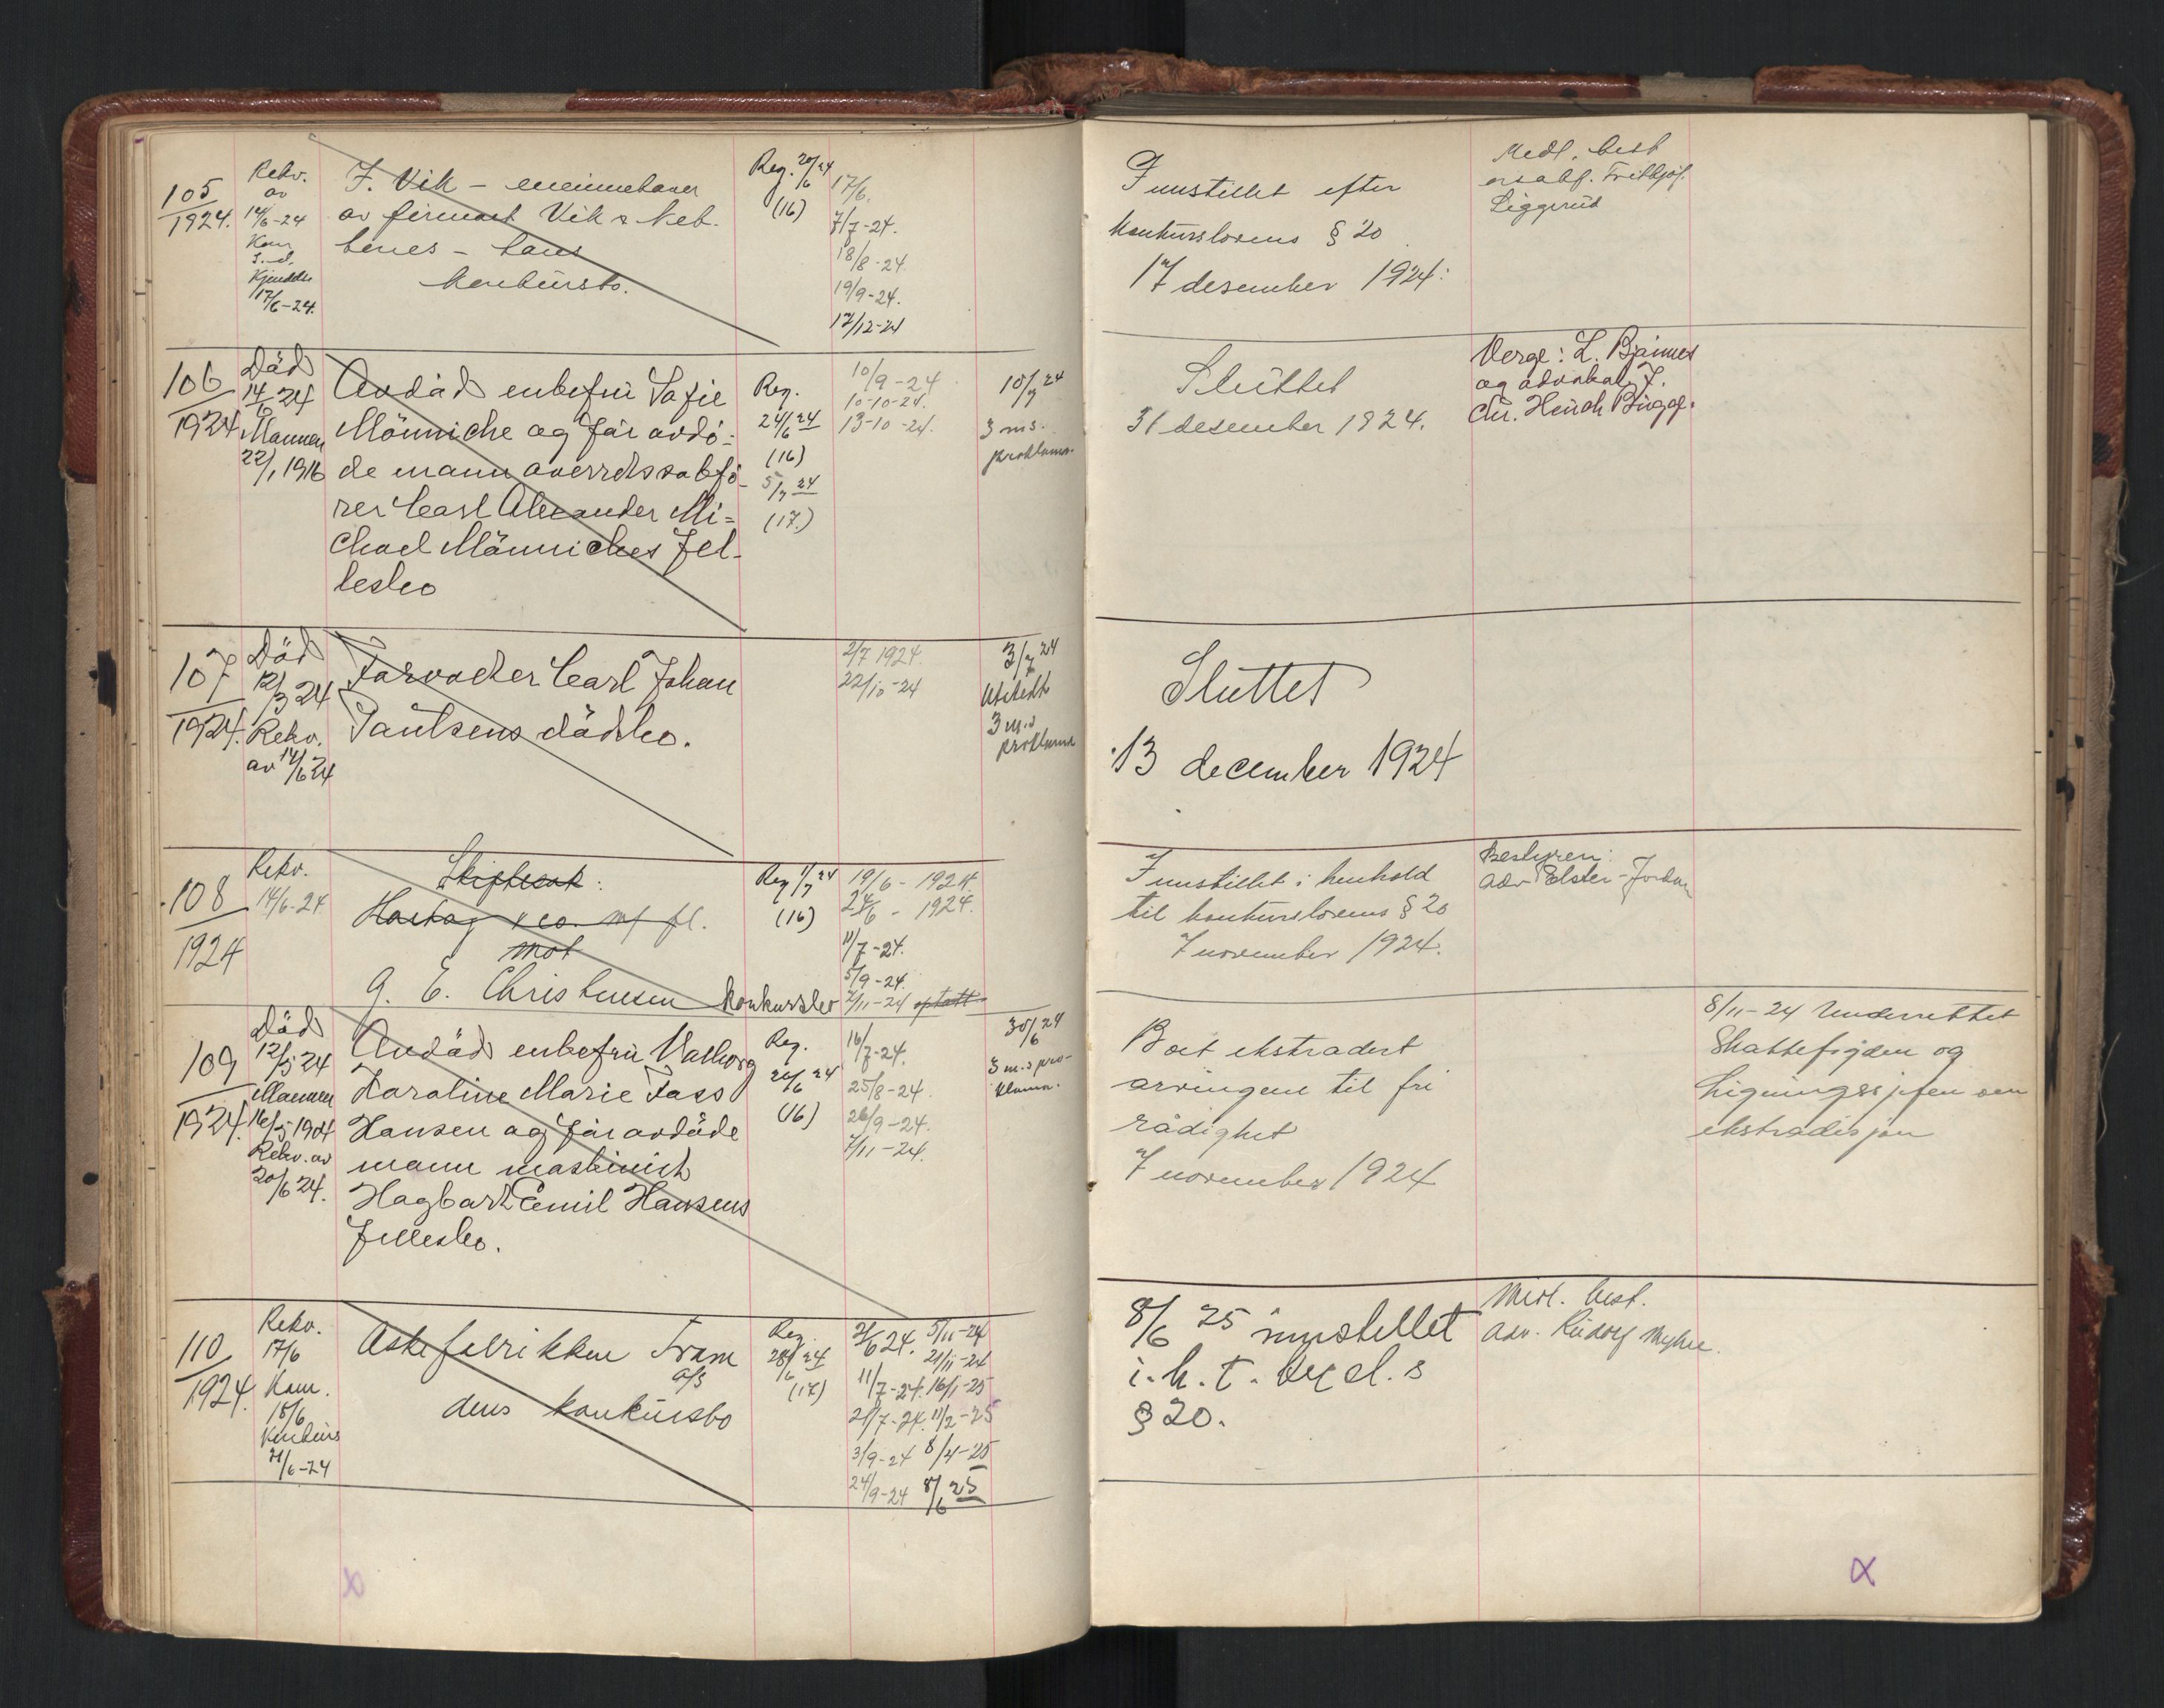 105
1924.
Rekv.
av
14/6-24
Kjendelse
17/6-24.
J. Vik - eneinnehaver
av firmaet Vik & Neb-
benes - hans
konkursbo.
Reg. 20/6 24
(16)
17/6.
7/7-24.
18/8-24
19/9-24.
17/12-24
Innstillet efter
konkurslovens § 20
17 desember 1924.
Medl. best
orsakf. Frithjof
Siggerud
106
1924
Död
14/6 24
Mannen
22/1 1916
Avdöd enkefru Sofie
Mönniche og før avdö-
de mann overretssakfö-
rer Carl Alexander Mi-
chael Mönniches fel-
lesbo
Reg.
24/6 24
(16)
5/7 24
(17.)
10/9-24
10-10-24.
13-10-24.
10/7 24
3 m.s.
proklama.
Sluttet
31 desember 1924.
Verge: L. Bjännes
og advokat J.
Chr. Heuch Bugge.
107
1924.
Död
12/3 24
Rekv.
av 14/6 24
Farvader Carl Johan
Paulsens dödsbo.
2/7 1924.
22/10-24
3/7 24
Utstedt
3 m.s
proklama
Sluttet
13 december 1924
108
1924
Rekv.
14/6-24
Skiftesak:
Hartog & co. m/ fl.
mot
G. E. Christensen konkursbo
Reg 1/7 24
(16)
19/6 - 1924.
24/6 - 1924.
11/7-24.
5/9-24.
7/11-24 optatt
Innstillet i henhold
til konkurslovens § 20
7 november 1924.
Bestyrer:
adv Elster-Jordan
109
1924.
Död
12/5 24
Mannen
16/5 1904
Rekv. av
20/6 24.
Avdöd enkefru Valborg
Karoline Marie Foss
Hansen og før avdöde
mann maskinist
Hagbart Emil Hansens
fellesbo.
Reg.
26/6 24
(16)
16/7-24.
25/8-24.
26/9-24.
7/11-24.
30/6 24
3 m.s pro-
klama.
Boet ekstradert
arvingene til fri
rådighet
7 november 1924
8/11-24 Underrettet
Skattefogden og
Ligningssjefen om
ekstradisjon
110
1924.
Rekv.
17/6
Kam.
18/6
Konkurs
21/6-24
Askefabrikken Fram
A/S
dens konkursbo
Reg.
28/6 24
(17)
21/6 24. 5/11-24
21/11-24
11/7-24. 16/1-25
21/7-24. 11/2-25
3/9-24 8/4-25
24/9-24 8/6 25
8/6 25 innstillet
i. h. t. kkl. s
§ 20.
Midl. best.
adv. Rudolf Myhre.
x
x